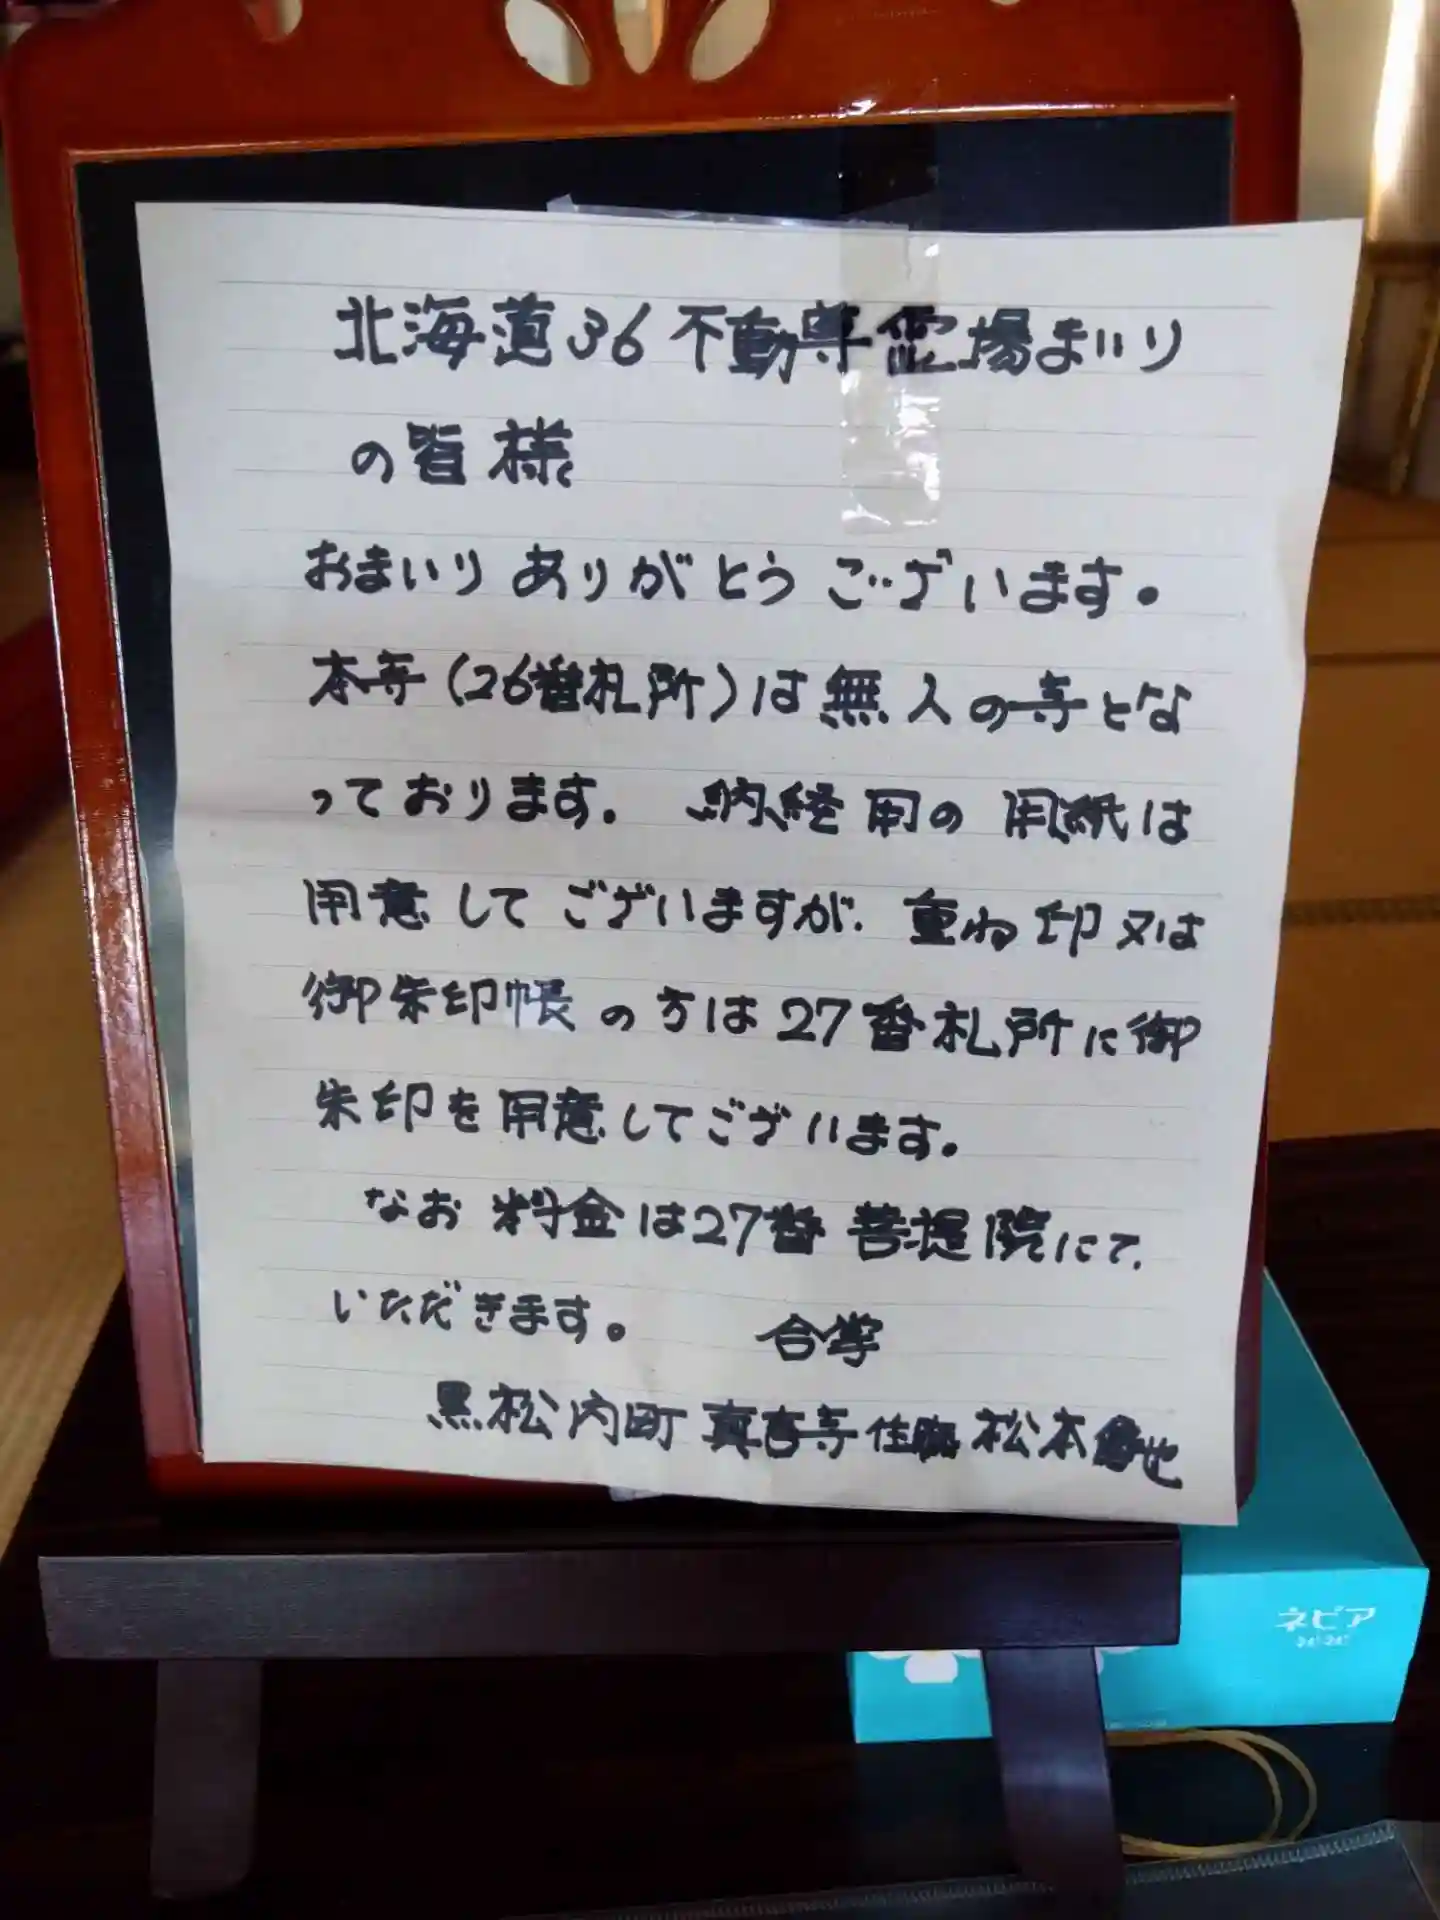 北海道36不動尊霊場まいり
の皆様
おまいりありがとうございます。
本寺(26番札所)は無人の寺とな
っております。 納経用の用紙は
用意してございますが、重ね印又は
御朱印帳の方は27番札所に御
朱印を用意してございます。
なお料金は27番菩提院にて、
いただきます。 合掌
黒松内町 真言寺住職 松本 也
ネピア